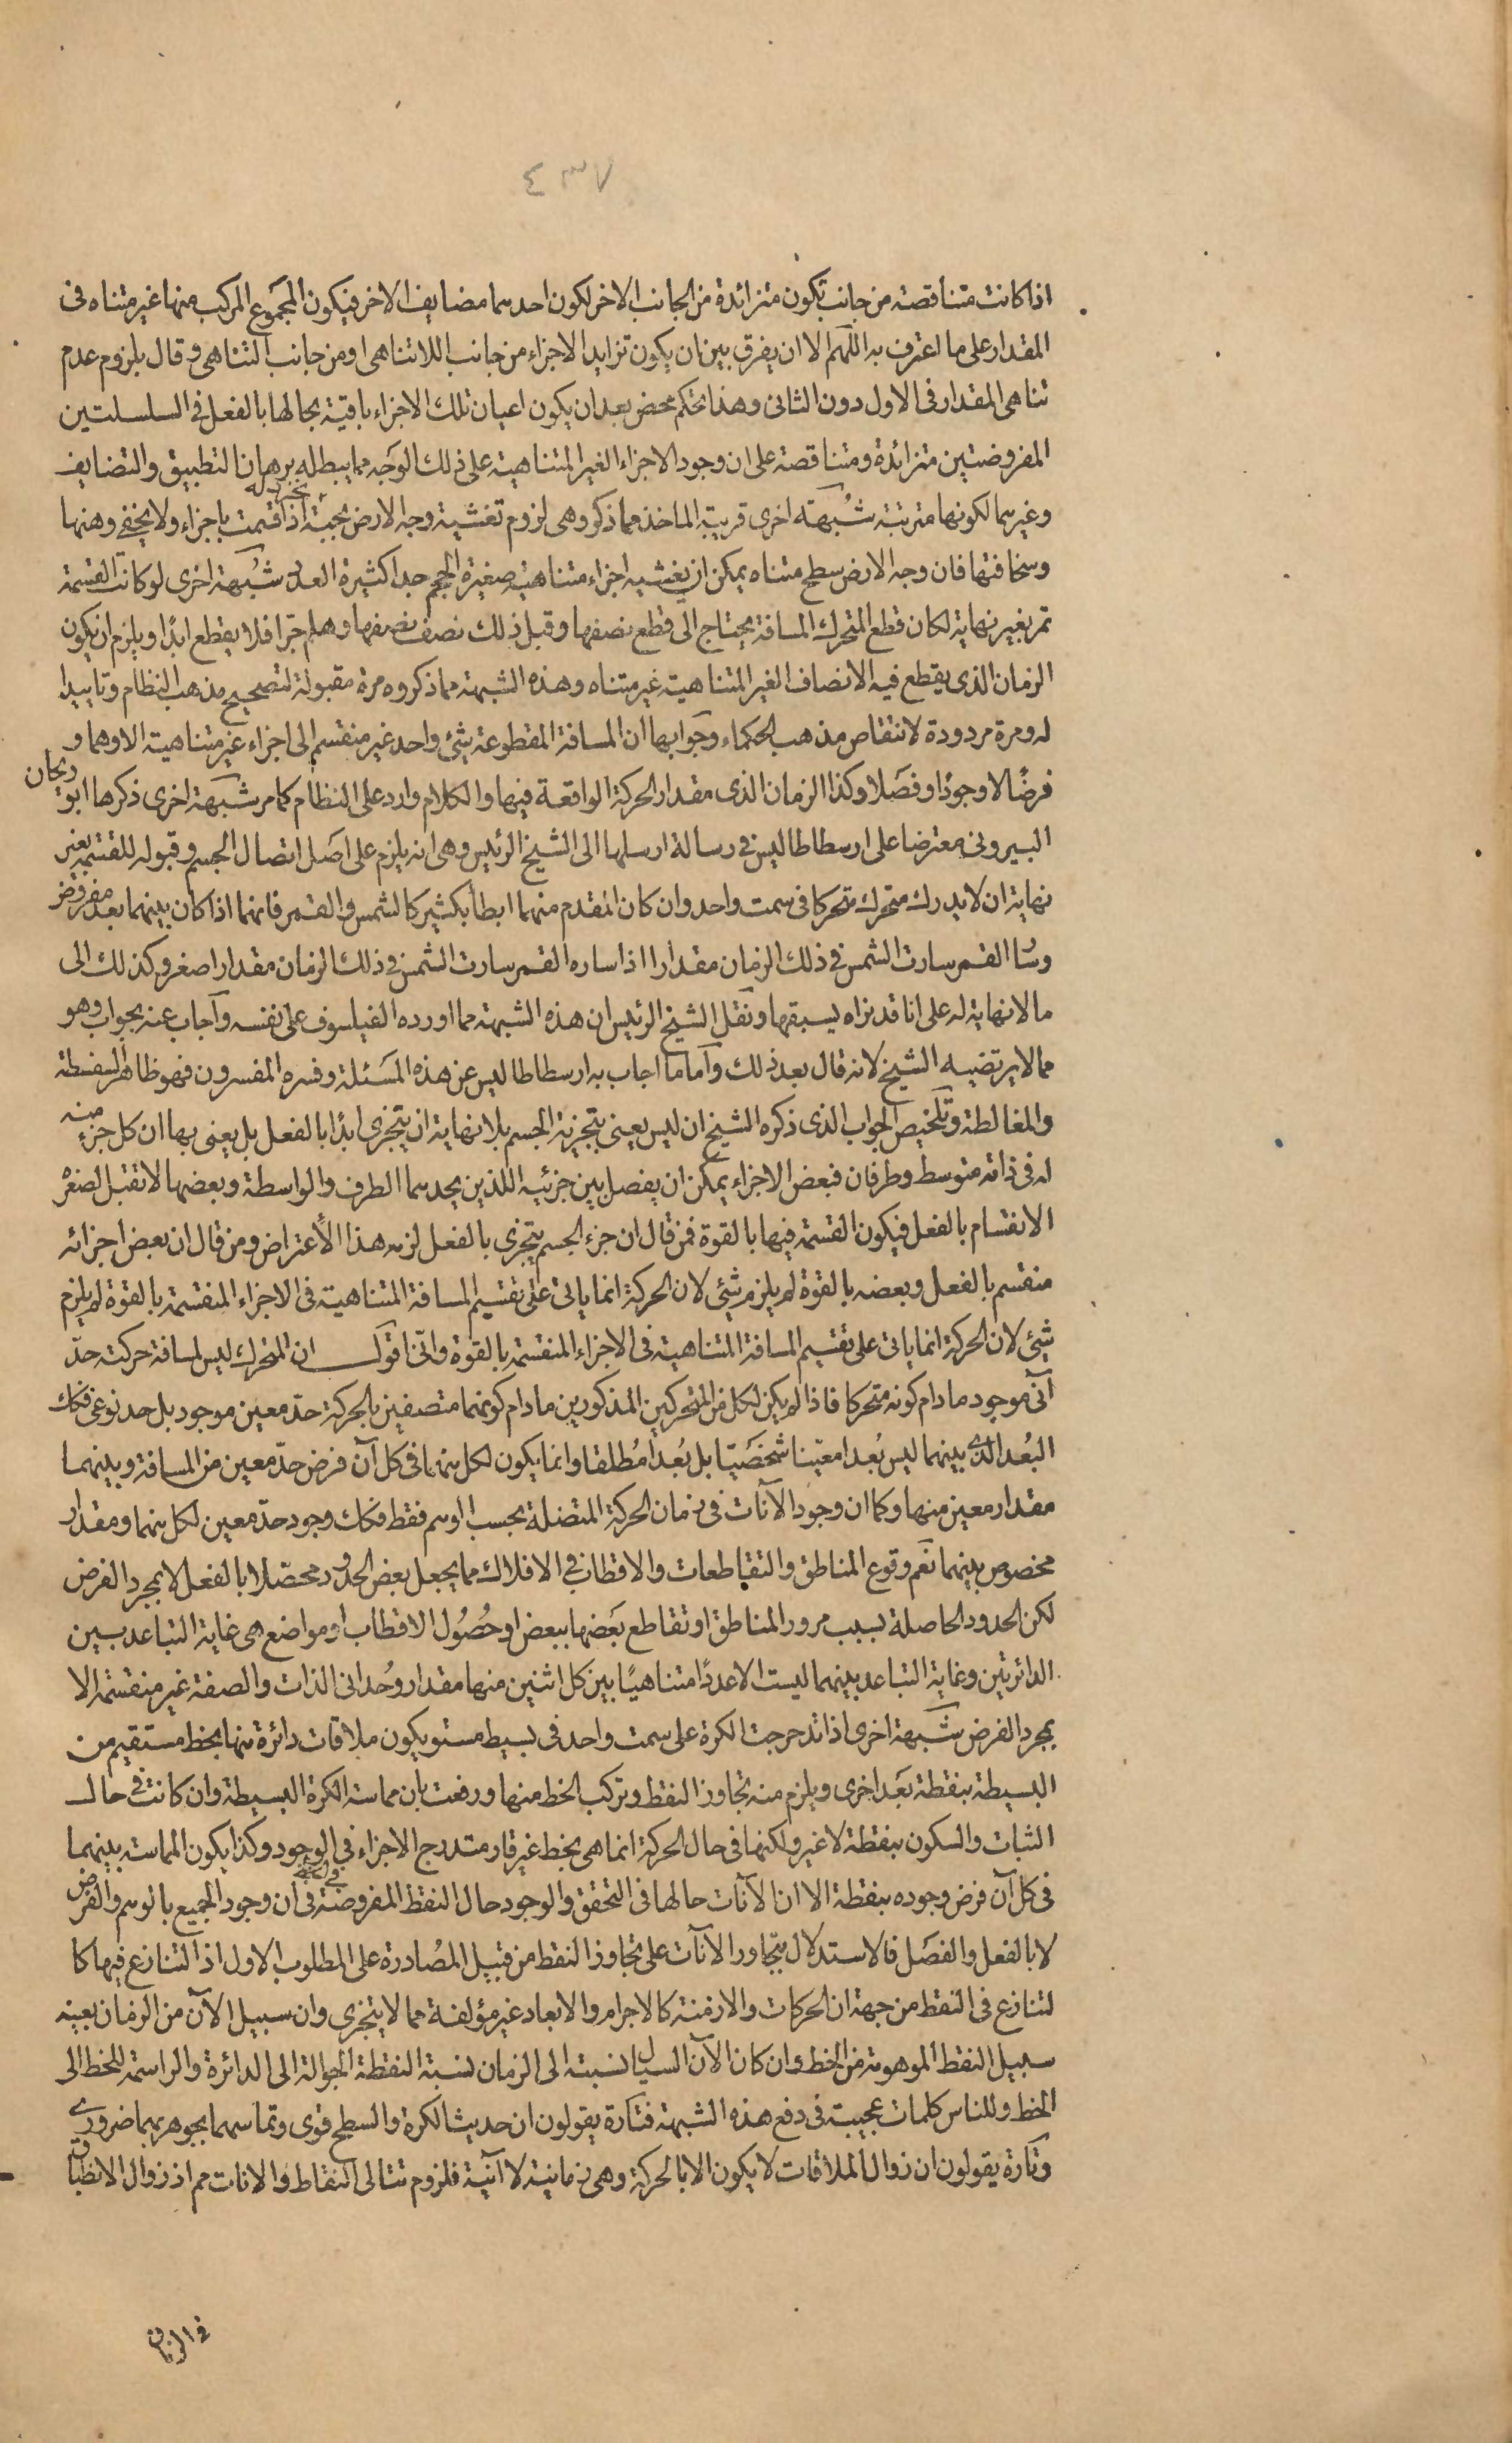 ٤٣٧
اذا كانت متناقصة من جانب تكون متزائدة من الجانب الاخر لكون احدهما مضايف الاخر فيكون المجموع المركب منها غير متناه فى
المقدار على ما اعترف به اللهم الا ان يفرق بين ان يكون تزايد الاجزاء من جانب اللاتناهى او من جانب التناهى وقال بلزوم عدم
تناهى المقدار فى الاول دون الثانى وهذا تحكم محض بعد ان يكون اعيان تلك الاجزاء باقية بحالها بالفعل فى السلسلتين
المفروضتين متزائدة ومتناقصة على ان وجود الاجزاء الغير المتناهية على ذلك الوجه مما يبطله برهانا التطبيق والتضايف
وغيرهما لكونها مترتبة شبهة اخرى قريبة الماخذ مما ذكر وهى لزوم تغشية وجه الارض بحبة خردلة اذا قسمت باجزاء ولا يخفى وهنها
وسخافتها فان وجه الارض سطح متناه يمكن ان يغشيه اجزاء متناهية صغيرة الحجم جدا كثيرة العدد شبهة اخرى لو كانت القسمة
تمر بغير نهاية لكان قطع المتحرك المسافة يحتاج الى قطع نصفها وقبل ذلك نصف نصفها وهلم جرا فلا يقطع ابدا ويلزم ان يكون
الزمان الذى يقطع فيه الانصاف الغير المتناهية غير متناه وهذه الشبهة مما ذكروه مرة مقبولة لتصحيح مذهب النظام وتاييدا
له ومرة مردودة لانتقاص مذهب الحكماء وجوابها ان المسافة المقطوعة شئ واحد غير منقسم الى اجزاء غير متناهية الا وهما و
فرضًا لا وجودًا وفصلا وكذا الزمان الذى مقدار الحركة الواقعة فيها والكلام وارد على النظام كما مر شبهة اخرى ذكرها ابو ريحان
البيرونى معترضا على ارسطاطاليس فى رسالة ارسلها الى الشيخ الرئيس وهى انه يلزم على اصل اتصال الجسم وقبوله للقسمة بغير
نهاية ان لا يدرك متحرك متحركا فى سمت واحد وان كان المقدم منهما ابطأ بكثير كالشمس والقمر فانهما اذا كان بينهما بعد مفروض
وسار القمر سارت الشمس فى ذلك الزمان مقدارا اذا ساره القمر سارت الشمس فى ذلك الزمان مقدارا اصغر وكذلك الى
ما لا نهاية له على انا قد نراه يسبقها ونقل الشيخ الرئيس ان هذه الشبهة مما اورده الفيلسوف على نفسه وآجاب عنه بجواب وهو
مما لا يرتضيه الشيخ لانه قال بعد ذلك وآما ما اجاب به ارسطاطاليس عن هذه المسئلة وفسره المفسرون فهو ظاهر السفسطة
والمغالطة وتلخيص الجواب الذى ذكره الشيخ ان ليس يعنى بتجزية الجسم بلا نهاية ان يتجزى ابدًا بالفعل بل يعنى بها ان كل جزء منه
له فى ذاته متوسط وطرفان فبعض الاجزاء يمكن ان يفصل بين جزئيه اللذين يحدهما الطرف والواسطة وبعضها لا تقبل لصغره
الانقسام بالفعل فيكون القسمة فيها بالقوة فمن قال ان جزء الجسم يتجزى بالفعل لزمه هذا الأعتراض ومن قال ان بعض اجزائه
منقسم بالفعل وبعضه بالقوة لم يلزم شئ لان الحركة انما ياتى على تقسيم المسافة المتناهية فى الاجزاء المنقسمة بالقوة لم يلزم
شئ لان الحركة انما ياتى على تقسيم المسافة المتناهية فى الاجزاء المنقسمة بالقوة وانى اقول ان المتحرك ليس لمسافة حركته حدّ
آنى موجود ما دام كونه متحركا فاذا لم يكن لكل من المتحركين المذكورين ما دام كونهما متصفين بالحركة حدّ معين موجود بل حد نوعى فكك
البُعد الذى بينهما ليس بُعدا معيّنا شخصيّا بل بُعدا مُطلقا وانما يكون لكل منهما فى كل آن فرض حدّ معين من المسافة وبينهما
مقدار معين منها وكما ان وجود الآنات فى زمان الحركة المتصلة بحسب الوهم فقط فكك وجود حدّ معين لكل منهما ومقدار
مخصوص بينهما نعم وقوع المناطق والتقاطعات والاقطاب فى الافلاك مما يجعل بعض الحدود محصّلا بالفعل لا بمجرد الفرض
لكن الحدود الحاصلة بسبب مرور المناطق او تقاطع بعضها ببعض او حُصُول الاقطاب او مواضع هى غاية التباعد بين
الدائرتين وغاية التباعد بينهما ليست الا عددًا متناهيًا بين كل اثنين منها مقدار وُحدانى الذات والصفة غير منقسمة الا
بمجرد الفرض شبهة اخرى اذا تدحرجت الكرة على سمت واحد فى بسيط مستو يكون ملاقات دائرة منها بخط مستقيم من
البسيطة بنقطة بعد اخرى ويلزم منه تجاور النقط وتركب الخط منها ورفعت بان مماسة الكرة البسيطة وان كانت فى حال
الثبات والسكون بنقطة لا غير ولكنها فى حال الحركة انما هى بخط غير قار متدرج الاجزاء فى الوجود وكذا يكون المماسة بينهما
فى كل آن فرض وجوده بنقطة الا ان الآنات حالها فى التحقق والوجود حال النقط المفروضة فى ان وجود الجميع بالوهم والفرض
لا بالفعل والفصل فالاستدلال بتجاور الآنات على تجاور النقط من قبيل المصُادرة على المطلوب الاول اذ التنازع فيها كا
لتنازع فى النقط من جهة ان الحركات والازمنة كالاجرام والابعاد غير مؤلفة مما لا يتجزى وان سبيل الآن من الزمان بعينه
سبيل النقط الموهومة من الخط وان كان الآن السيال نسبته الى الزمان نسبة النقطة الجوالة الى الدائرة والراسمة للخط الى
الخط وللناس كلمات عجيبة فى دفع هذه الشبهة فتارة يقولون ان حديث الكرة والسطح قوى وتماسهما بجوهريهما ضرورى
وتارة يقولون ان زوال الملاقات لا يكون الا بالحركة وهى زمانية لا آنية فلزوم تتالى النقاط والانات مم اذ زوال الانطباق